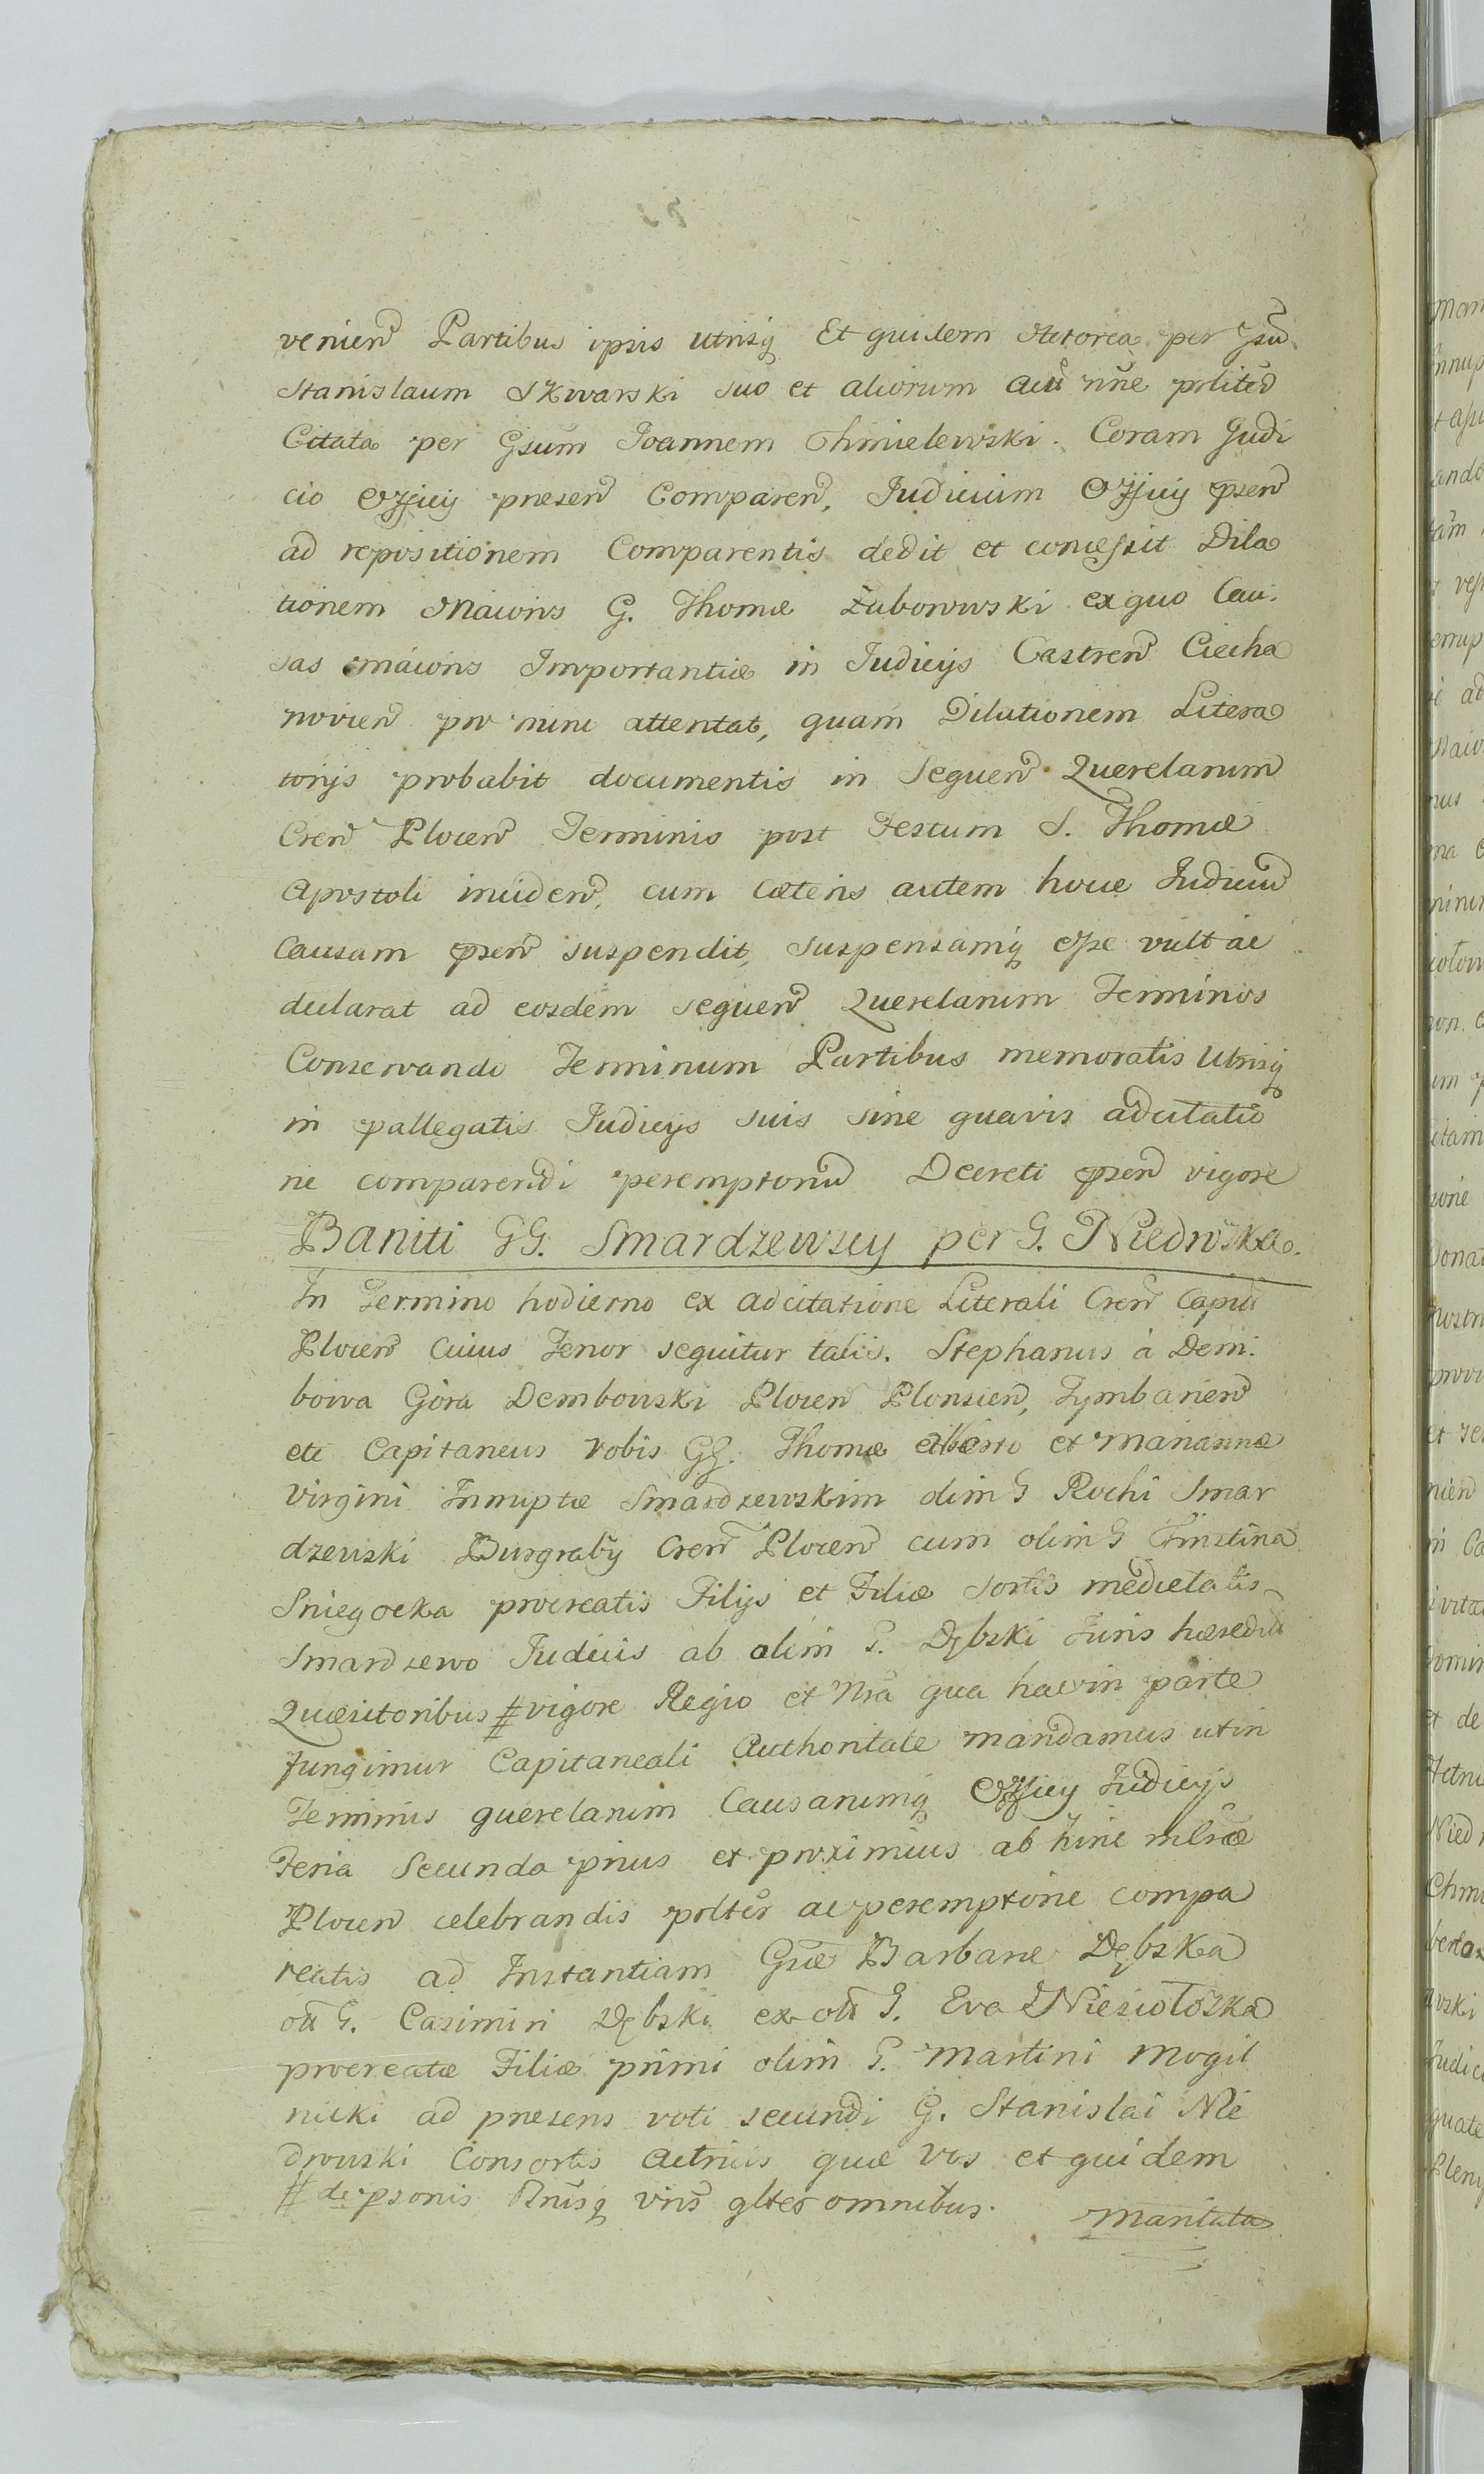 venien Partibus ipsis utrisq Et quidem Actorea per Gsũ
Stanislaum Skwarski suo et aliorum acũ nñe prlitẽr
Citata per Gsum Joannem Chmielewski. Coram Judi
cio Officij presen Comparen, Judicium Officij psen
ad repositionem Comparentis dedit et concessit Dila
tionem Maioris G. Thomæ Żubowski ex quo Cau:
sas maioris Importantiæ in Judicijs Castren Ciecha
novien pro nunc attentat, quam Dilationem Litera
torijs probabit documentis in Sequen Querelarum
Cren Plocen Terminis post Festum S. Thomæ
Apostoli inciden, cum cæteris autem hocce Judiciũ
Causam psen suspendit, suspensamq esse vult ac
declarat ad eosdem sequen Querelarum Terminos
Conservando Terminum Partibus memoratis Utrisq
in pallegatis Judicijs suis sine quavis adcitatio
ne comparendi peremptoriũ Decreti psen vigore
Baniti GG. Smardzewscy per G. Niedrwska.
In Termino hodierno ex adcitatione Literali Cren Capit
Plocen Cuius Tenor sequitur talis. Stephanus à Dem:
bowa Góra Dembowski Plocen Plonscen, Tymbarien
etc Capitaneus Vobis GG. Thomæ Alberto et Mariannæ
Virgini Innuptæ Smardzewskim olim G Rochi Smar
dzewski Burgrabij Cren Plocen cum olim G Christina
Sniegocka procreatis Filijs et Filiæ sortis medietatis
Smardzewo Judicis ab olim G. Dębski Juris hæredit
Quæsitoribus # vigore Regio et Nrã qua hac in parte
fungimur Capitaneali Authoritate mandamus ut in
Terminis querelarum Causarumq Officij Judicijs
Feria Secunda prius et proximius ab hinc
Plocen celebrandis prlter ac peremptorie compa
reatis ad Instantiam Gsæ Barbaræ Dębska
oli G. Casimiri Dębski ex oli G. Eva Niesiołoska
procreatæ Filiæ primi olim G. Martini Mogil
nicki ad presens voti secundi G. Stanislai Nie
drwski Consortis Actricis quæ Vos et quidem
# de psonis Bnisq vris glter omnibus. Maritata